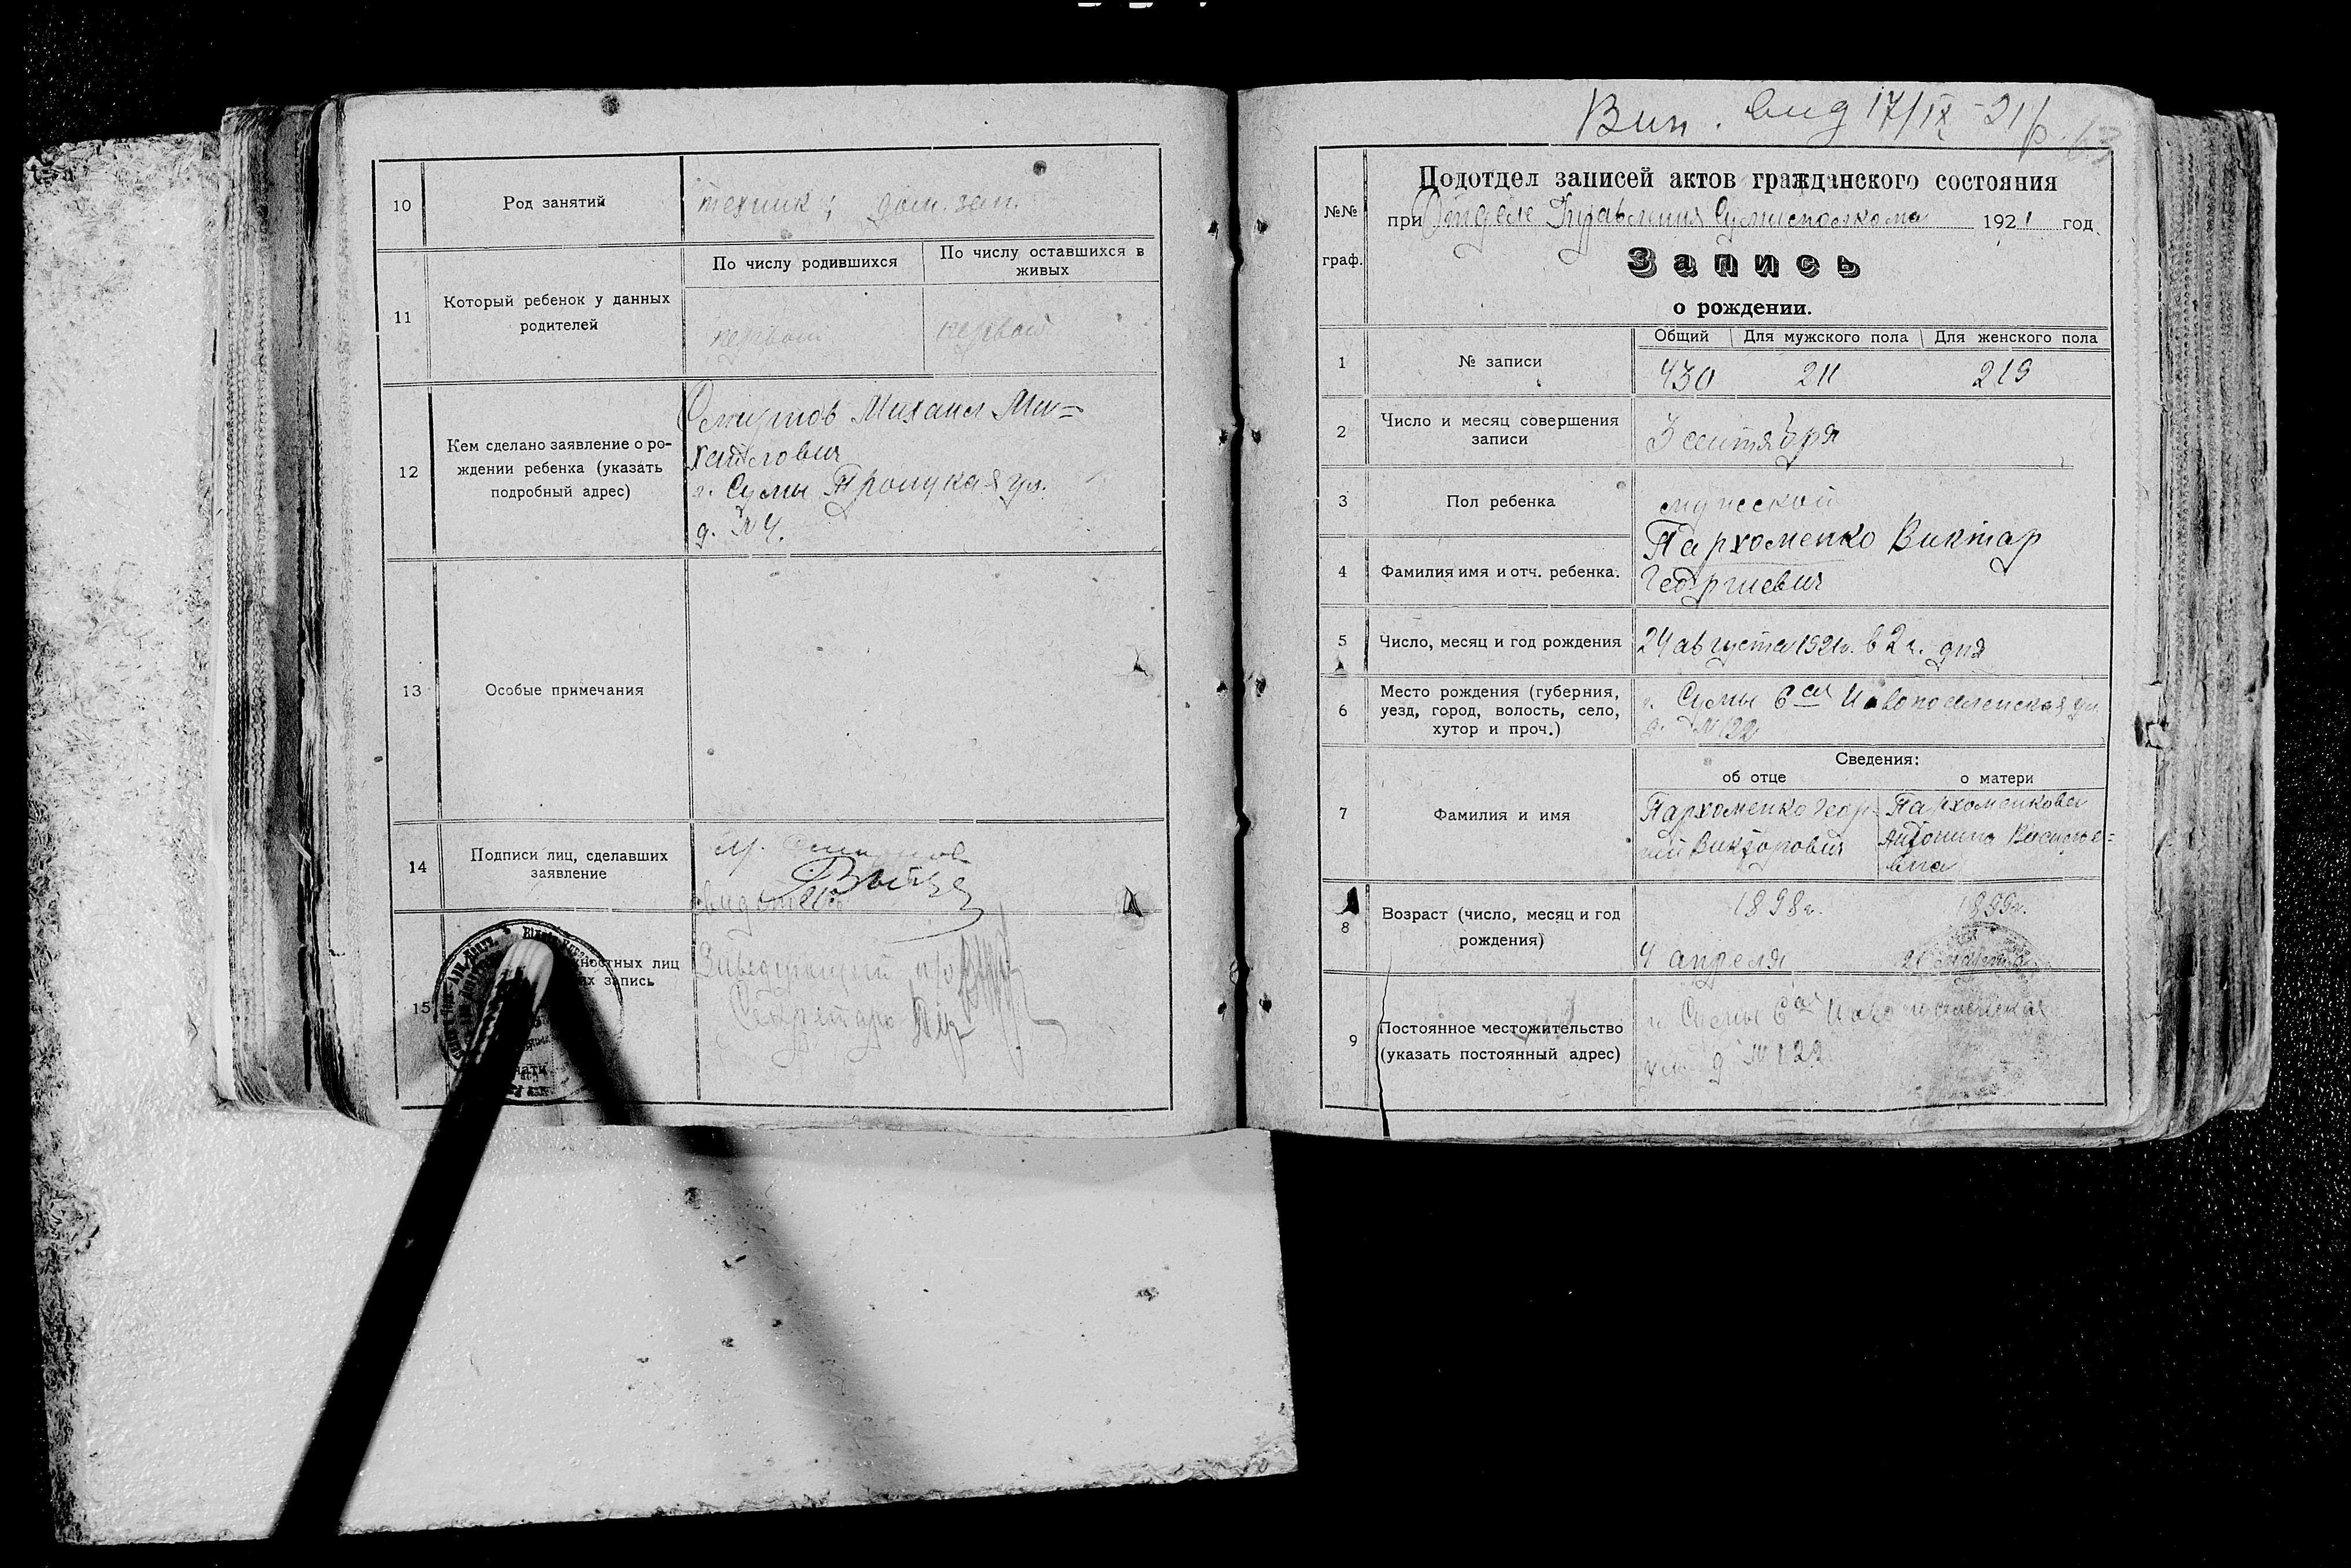 10
Род занятий
техник; дом. зан.
11
Который ребенок у данных
родителей
По числу родившихся
По числу оставшихся в
живых
первый
первый
12
Кем сделано заявление о ро-
ждении ребенка (указать
подробный адрес)
Михаил Ми=
хайлович
г. Сумы Троицкая ул.
д. № 4.
13
Особые примечания
14
Подписи лиц, сделавших
заявление
М.
свидетель
15
ностных лиц
их запись
Заведующий п/о
Секретарь
Вип. вид 17/IX-21 р.
63
№№
граф.
Подотдел записей актов гражданского состояния
при Отделе Управления Сумисполкома 1921 год
Запись
о рождении.
1
№ записи
Общий Для мужского пола Для женского пола
430 211 219
2
Число и месяц совершения
записи
3 сентября
3
Пол ребенка
мужской
4
Фамилия имя и отч. ребенка.
Пархоменко Виктар
Георгиевич
5
Число, месяц и год рождения
24 августа 1921 г. в 2 ч. дня
6
Место рождения (губерния,
уезд, город, волость, село,
хутор и проч.)
г. Сумы 6ая Новопоселенская ул.
д. № 122
Сведения:
об отце
о матери
7
Фамилия и имя
Пархоменко Геор-
гий Викторович
Пархоменкова
Антонина
вна
8
Возраст (число, месяц и год
рождения)
1898 г.
4 апреля
1899 г.
9
Постоянное местожительство
(указать постоянный адрес)
г. Сумы 6ая Новопоселенская
ул. д № 122